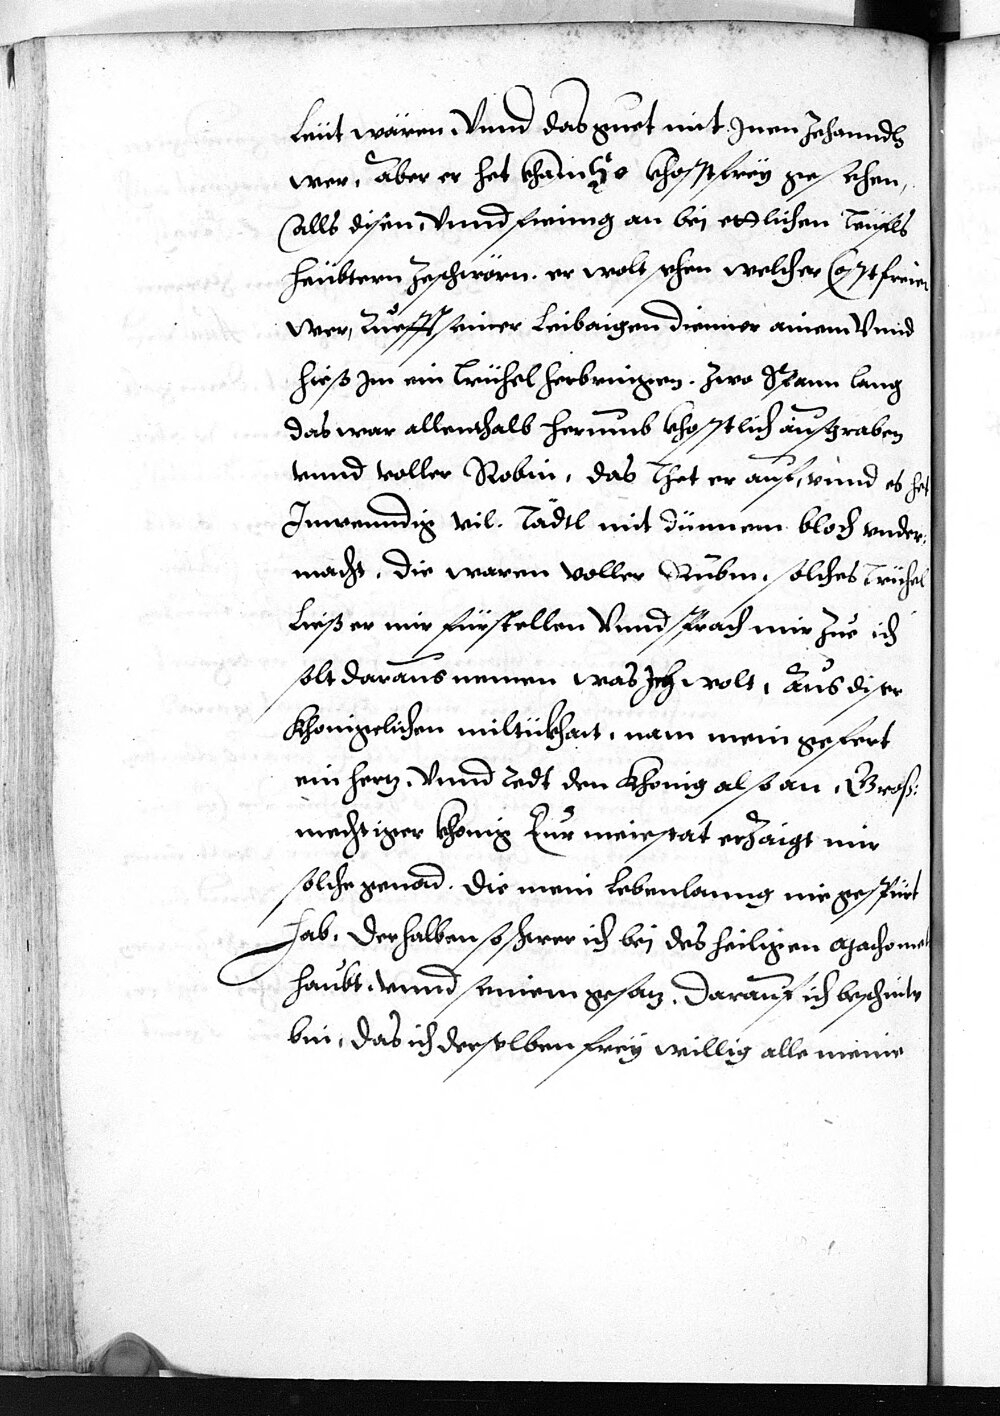 Leüt wären. Vnnd das guet mit Inen Zehanndln
wer, Aber er het khain so khosstfrey gesehen,
alls disen, Vnnd fieng an bei ettlichen Teüfls
heübtern Zeschwörn. er wolt sehen welcher Costfreier
wer, Rüefft seiner Leibaigen Dienner ainem Vnnd
hieß Im ein Trühel herbringen. Zwo Spann lang
das war allenthalb herumb khosstlich außgraben
vnnd voller Robin, das Thet er auf, vnnd es het
Inwenndig vil Tädtl mit dünnem bloch vnder:
macht, die waren voller Rubin, solches Trühel
Ließ er mir fürstellen Vnnd sprach mir Zue ich
solt daraus nemen was Ich wolt, Aus diser
Khönigclichen miltükhait, nam mein gefert
ein hertz, Vnnd Redt den Khönig also an, Groß:
mechtiger khönig Eur meiestat erzaigt mir
solche genad. die mein Lebenlanng nie gespürt
hab, Derhalben so schwer ich bei des heiligen Machomet
haubt, vnnd seinem gesatz, Darauf ich beschnitn
bin, Das ich derselben frey willig alle meine